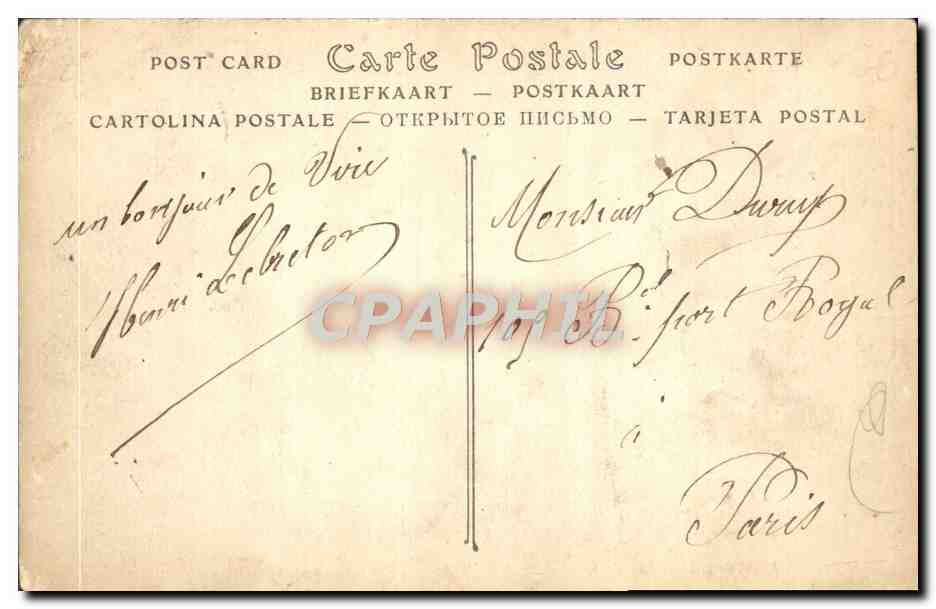 POST CARD Carte Postale POSTKARTE
BRIEFKAART — POSTKAART
CARTOLINA POSTALE — ОТКРЫТОЕ ПИСЬМО — TARJETA POSTAL
un bonjour de Vire
Henri Lebreton
Monsieur Duruy
105 Bd. port Royal
à
Paris
CPAPHIL